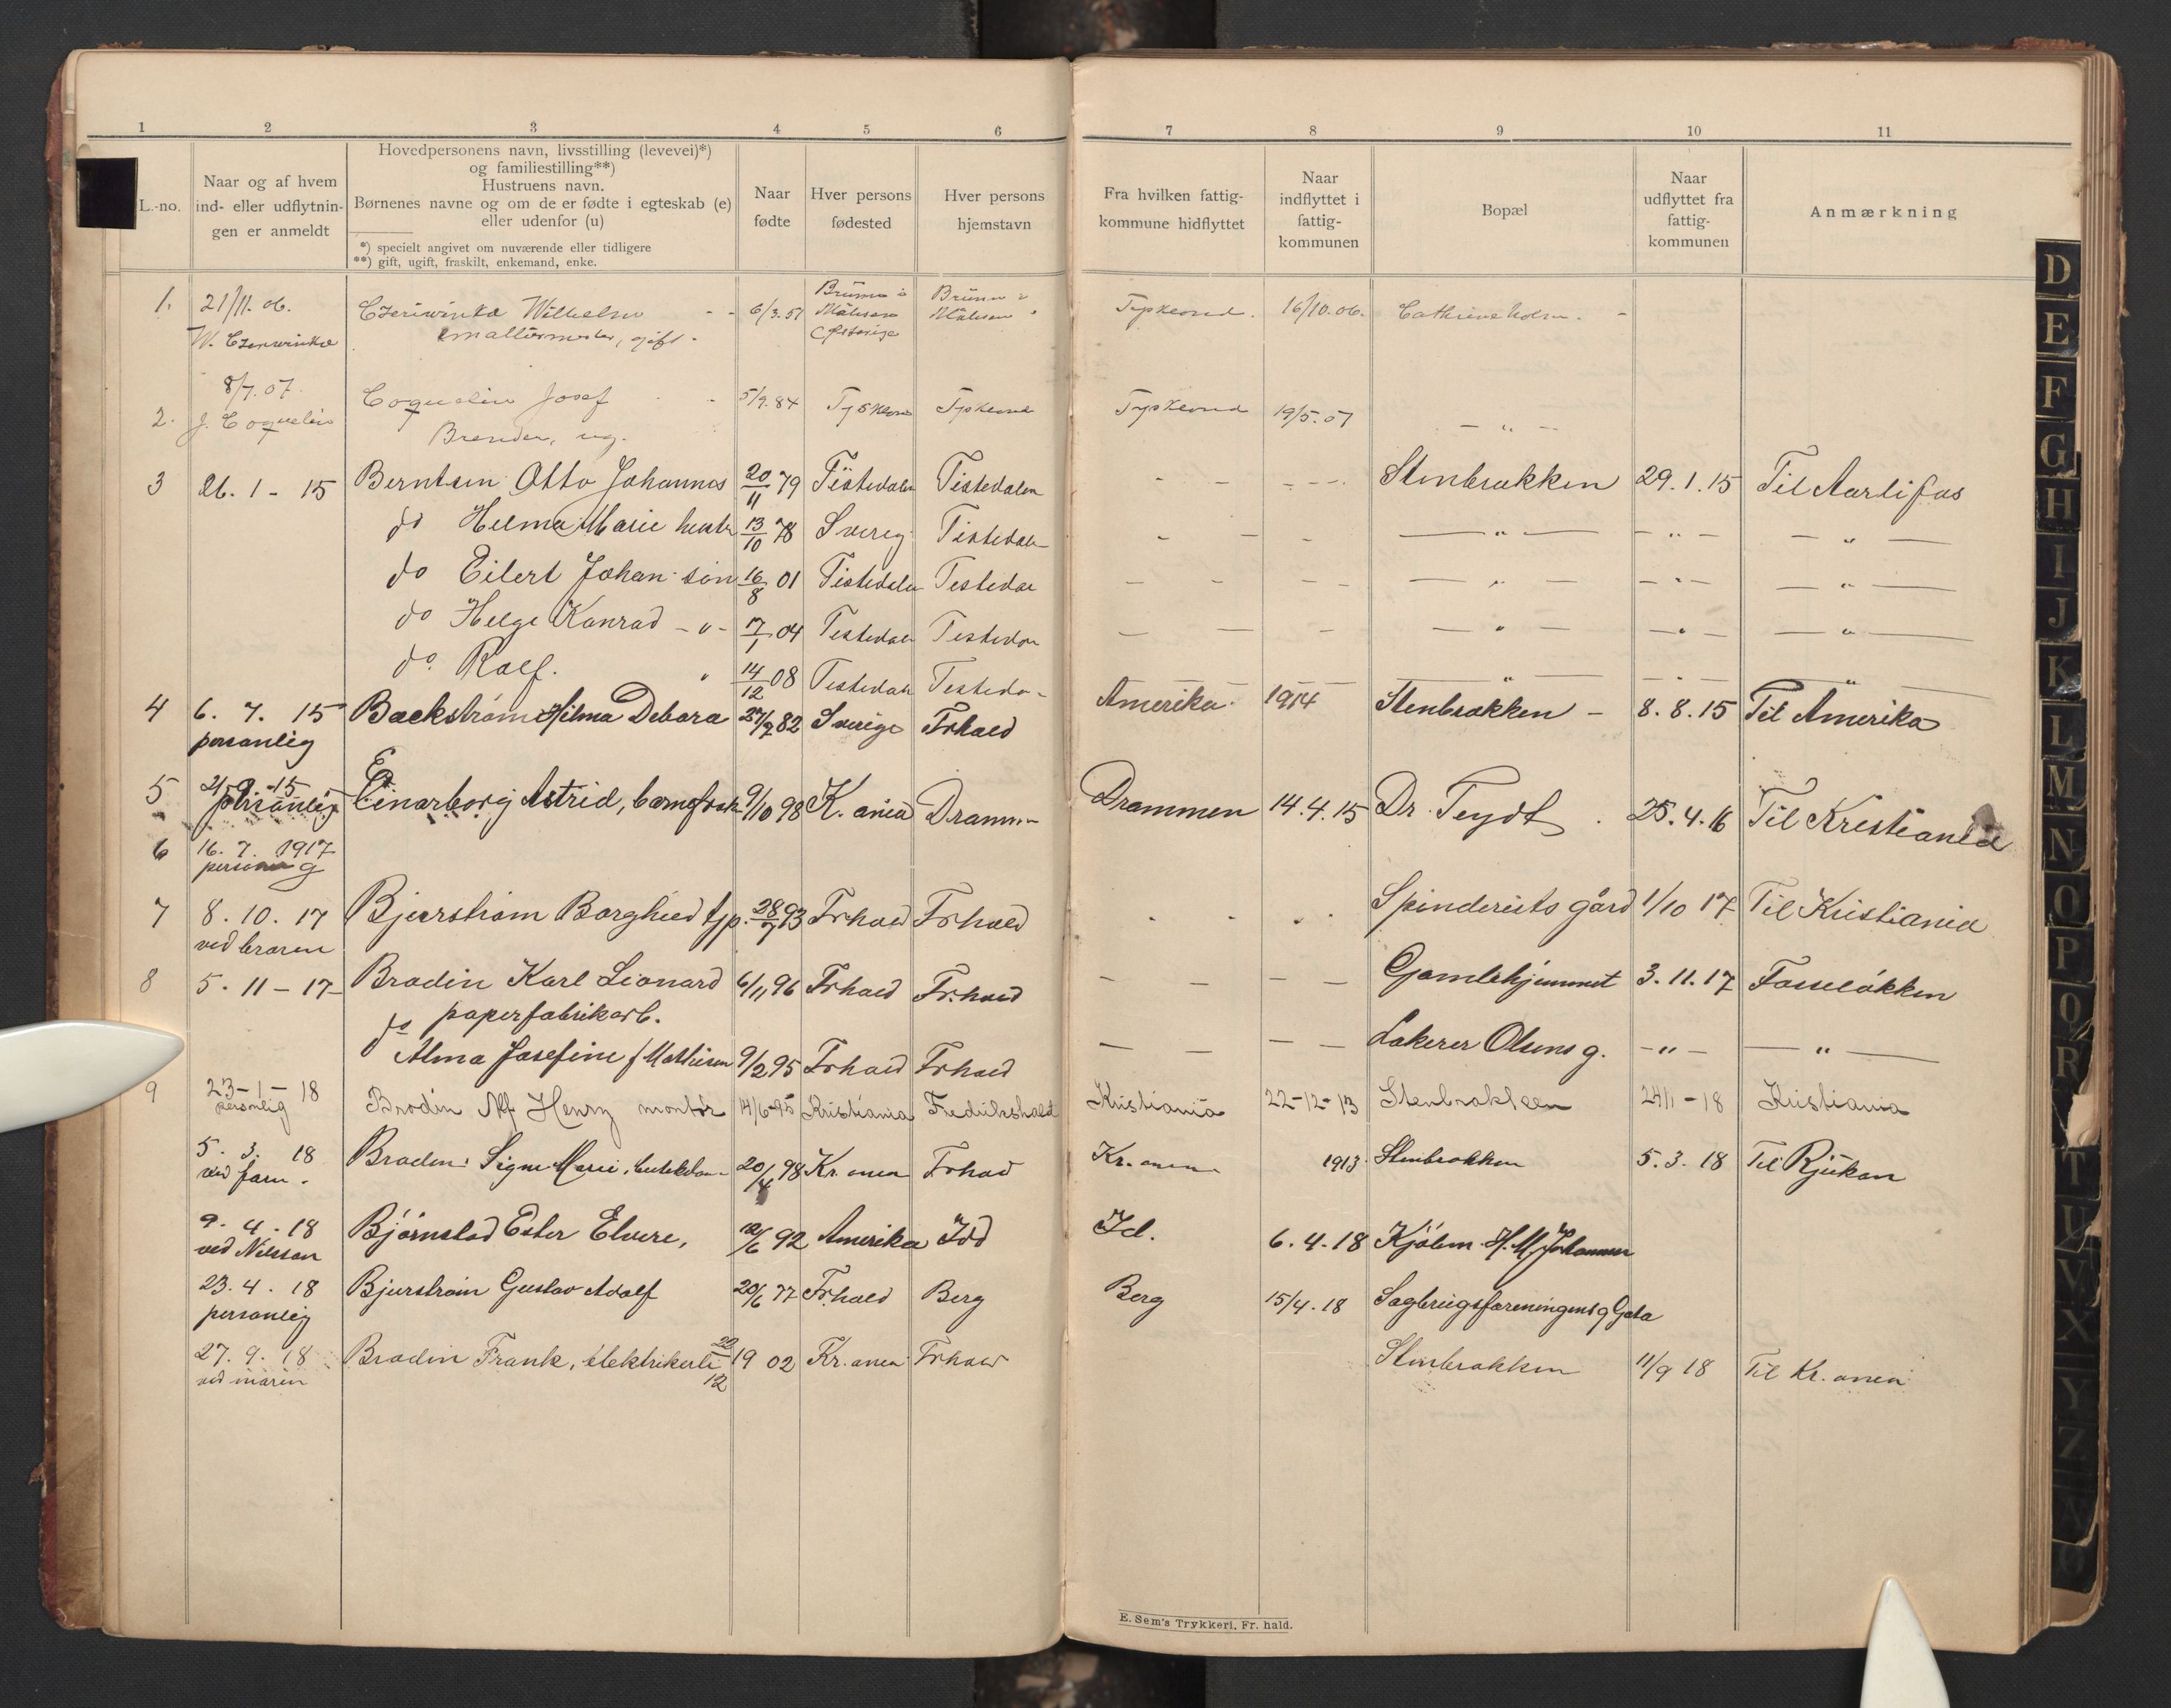 1 2 3 4 5 6 7 8 9 10 11
L.-no.
Naar og af hvem
ind- eller udflytnin-
gen er anmeldt
Hovedpersonens navn, livsstilling (levevei)*)
og familiestilling**)
Hustruens navn.
Børnenes navne og om de er fødte i egteskab (e)
eller udenfor (u)
*) specielt angivet om nuværende eller tidligere
**) gift, ugift, fraskilt, enkemand, enke.
Naar
fødte
Hver persons
fødested
Hver persons
hjemstavn
Fra hvilken fattig-
kommune hidflyttet
Naar
indflyttet i
fattig-
kommunen
Bopæl
Naar
udflyttet fra
fattig-
kommunen
Anmærkning
1. 21/11.06. Czeriwinka Wilhelm 6/3.57 Brünn i Brünn i Tyskland. 16/10.06. Cathrineholm.
W. Czerwinka gift. Mähren Mähren
Østerige
8/7.07.
2. J. Coquelin Coquelin Josef 5/9.84 Tyskland Tyskland Tyskland 19/5.07 — „ —
Brender, ug.
3 26. 1 - 15 Berntsen Otto Johannes 20/11 79 Tistedalen Tistedalen - - - - Stenbrækken 29.1.15 Til Aarlifos
do Helma Marie hustr 13/10 78 Sverig Tistedale - - - — „ — - „ - — „ —
do Eilert Johan sön 16/8 01 Tistedalen Testedal — — — — „ — — „ — — „ —
do Helge Konrad - „ - 17/1 04 Testedal Testedal — — — — „ — — „ — — „ —
do. Ralf. „ 14/12 08 Testedal Testeda — — — — „ — — „ — — „ —
4 6. 7. 15 Backstrøm Hilma Debora 27/7 82 Sverige Frhald Amerika 1914 Stenbrækken - 8.8.15 Til Amerika
personlig
5 21.9.15 Einarborg Astrid, 9/10 98 K.ania Dramm- Drammen 14.4.15 Dr. Teydt. 25.4.16 Til Kristiania
personlig
6 16. 7. 1917
personlig
7 8. 10. 17 Bjerstrøm Borghild tjp. 28/7 93 Frhald Frhald - - - - Spinderiets gård 1/10 17 Til Kristiania
ved broren
8 5. 11 - 17 Brodin Karl Leonard 6/11 96 Frhald Frhald - - - - Gamlehjemmet 3.11.17 Fosseløkken
paperfabrikarb.
do Alma Josefine f Mathisen 9/2 95 Frhald Frhald — — — — Lakerer Olsens g. - „ - — „ —
9 23-1-18 Brodin Alf Henry montør 14/6-95 Kristiania Fredrikshald Kristiania 22-12-13 Stenbrækken 24/1-18 Kristiania
personlig
5. 3. 18 Brodin Signe Marie, 20/4 98 Kr.ania Frhald Kr.ania 1913 Stenbrækken 5.3.18 Til Rjukan
ved faren.
9. 4. 18 Bjørnstad Ester Elvere, 12/6 92 Amerika Idd Id. 6.4.18 Kjølem. H.M. Johannsen
ved Nilssen
23. 4. 18 Bjurstrøm Gustav Adolf 20/6 77 Frhald Berg Berg 15/4.18 Sagbrugsforeningens g Gata
personlig
27. 9. 18 Brodin Frank, elektrikerlæ 20/12 19 02 Kr.ania Frhald Stenbrækken 11/9 18 Til Kr.ania
ved moren
E. Sem's Trykkeri. Fr. hald.
D
E
F
G
H
I
J
K
L
M
N
O
P
Q
R
T
U
V
X
Y
Z